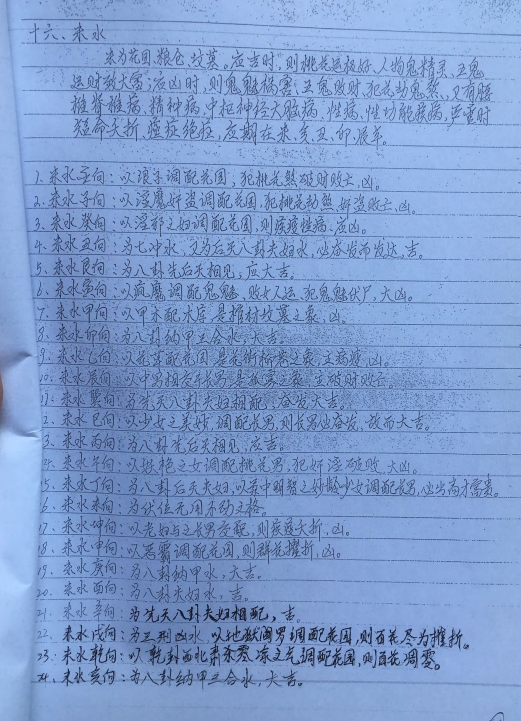 十六、未水
未为花园、粮仓、坟墓。应吉时，则桃花运极好、人物鬼精灵、五鬼
运财到大富；应凶时，则鬼魅祸害、五鬼败财、犯花劫鬼煞、又有腰
椎脊椎病、精神病、中枢神经大脑病、性病、性功能疾病，严重时
短命夭折、癌症绝症，应期在未、亥、丑、卯、辰年。
1. 未水壬向：以浪子调配花园，犯桃花煞破财败亡，凶。
2. 未水子向：以淫魔奸盗调配花园，犯桃花劫煞，奸盗败亡，凶。
3. 未水癸向：以淫邪之妇调配花园，则疾瘟性病，应凶。
4. 未水丑向：为七冲水，又为后天八卦夫妇水，必奋发而发达，吉。
5. 未水艮向：为八卦先后天相见，应大吉。
6. 未水寅向：以疯魔调配鬼魅，败女又运，犯鬼魅伏尸，大凶。
7. 未水甲向：以甲木配木库，是棺材坟墓之象，凶。
8. 未水卯向：为八卦纳甲三合水，大吉。
9. 未水乙向：以花草配花园，是花街柳巷之象，主病灾，凶。
10. 未水辰向：以中男相交于长男，是孤寡之象，主破财败亡。
11. 未水巽向：为先天八卦夫妇相配，奋发大吉。
12. 未水巳向：以少女之美妙，调配长男，则长男必奋发，故而大吉。
13. 未水丙向：为八卦先后天相见，应吉。
14. 未水午向：以妖艳之女调配桃花男，犯奸淫破败，大凶。
15. 未水丁向：为八卦后天夫妇，以其中明智之妙龄少女调配长男，必出高才富贵。
16. 未水未向：为伏位无用不动之格。
17. 未水坤向：以老妇与之长男交配，则疾瘟夭折，凶。
18. 未水申向：以恶霸调配花园，则群花摧折，凶。
19. 未水庚向：为八卦纳甲水，大吉。
20. 未水酉向：为八卦夫妇水，吉。
21. 未水辛向：为先天八卦夫妇相配，吉。
22. 未水戌向：为三刑凶水，以地狱阎男调配花园，则百花尽为摧折。
23. 未水乾向：以乾卦西北肃杀寒冻之气调配花园，则百花凋零。
24. 未水亥向：为八卦纳甲三合水，大吉。